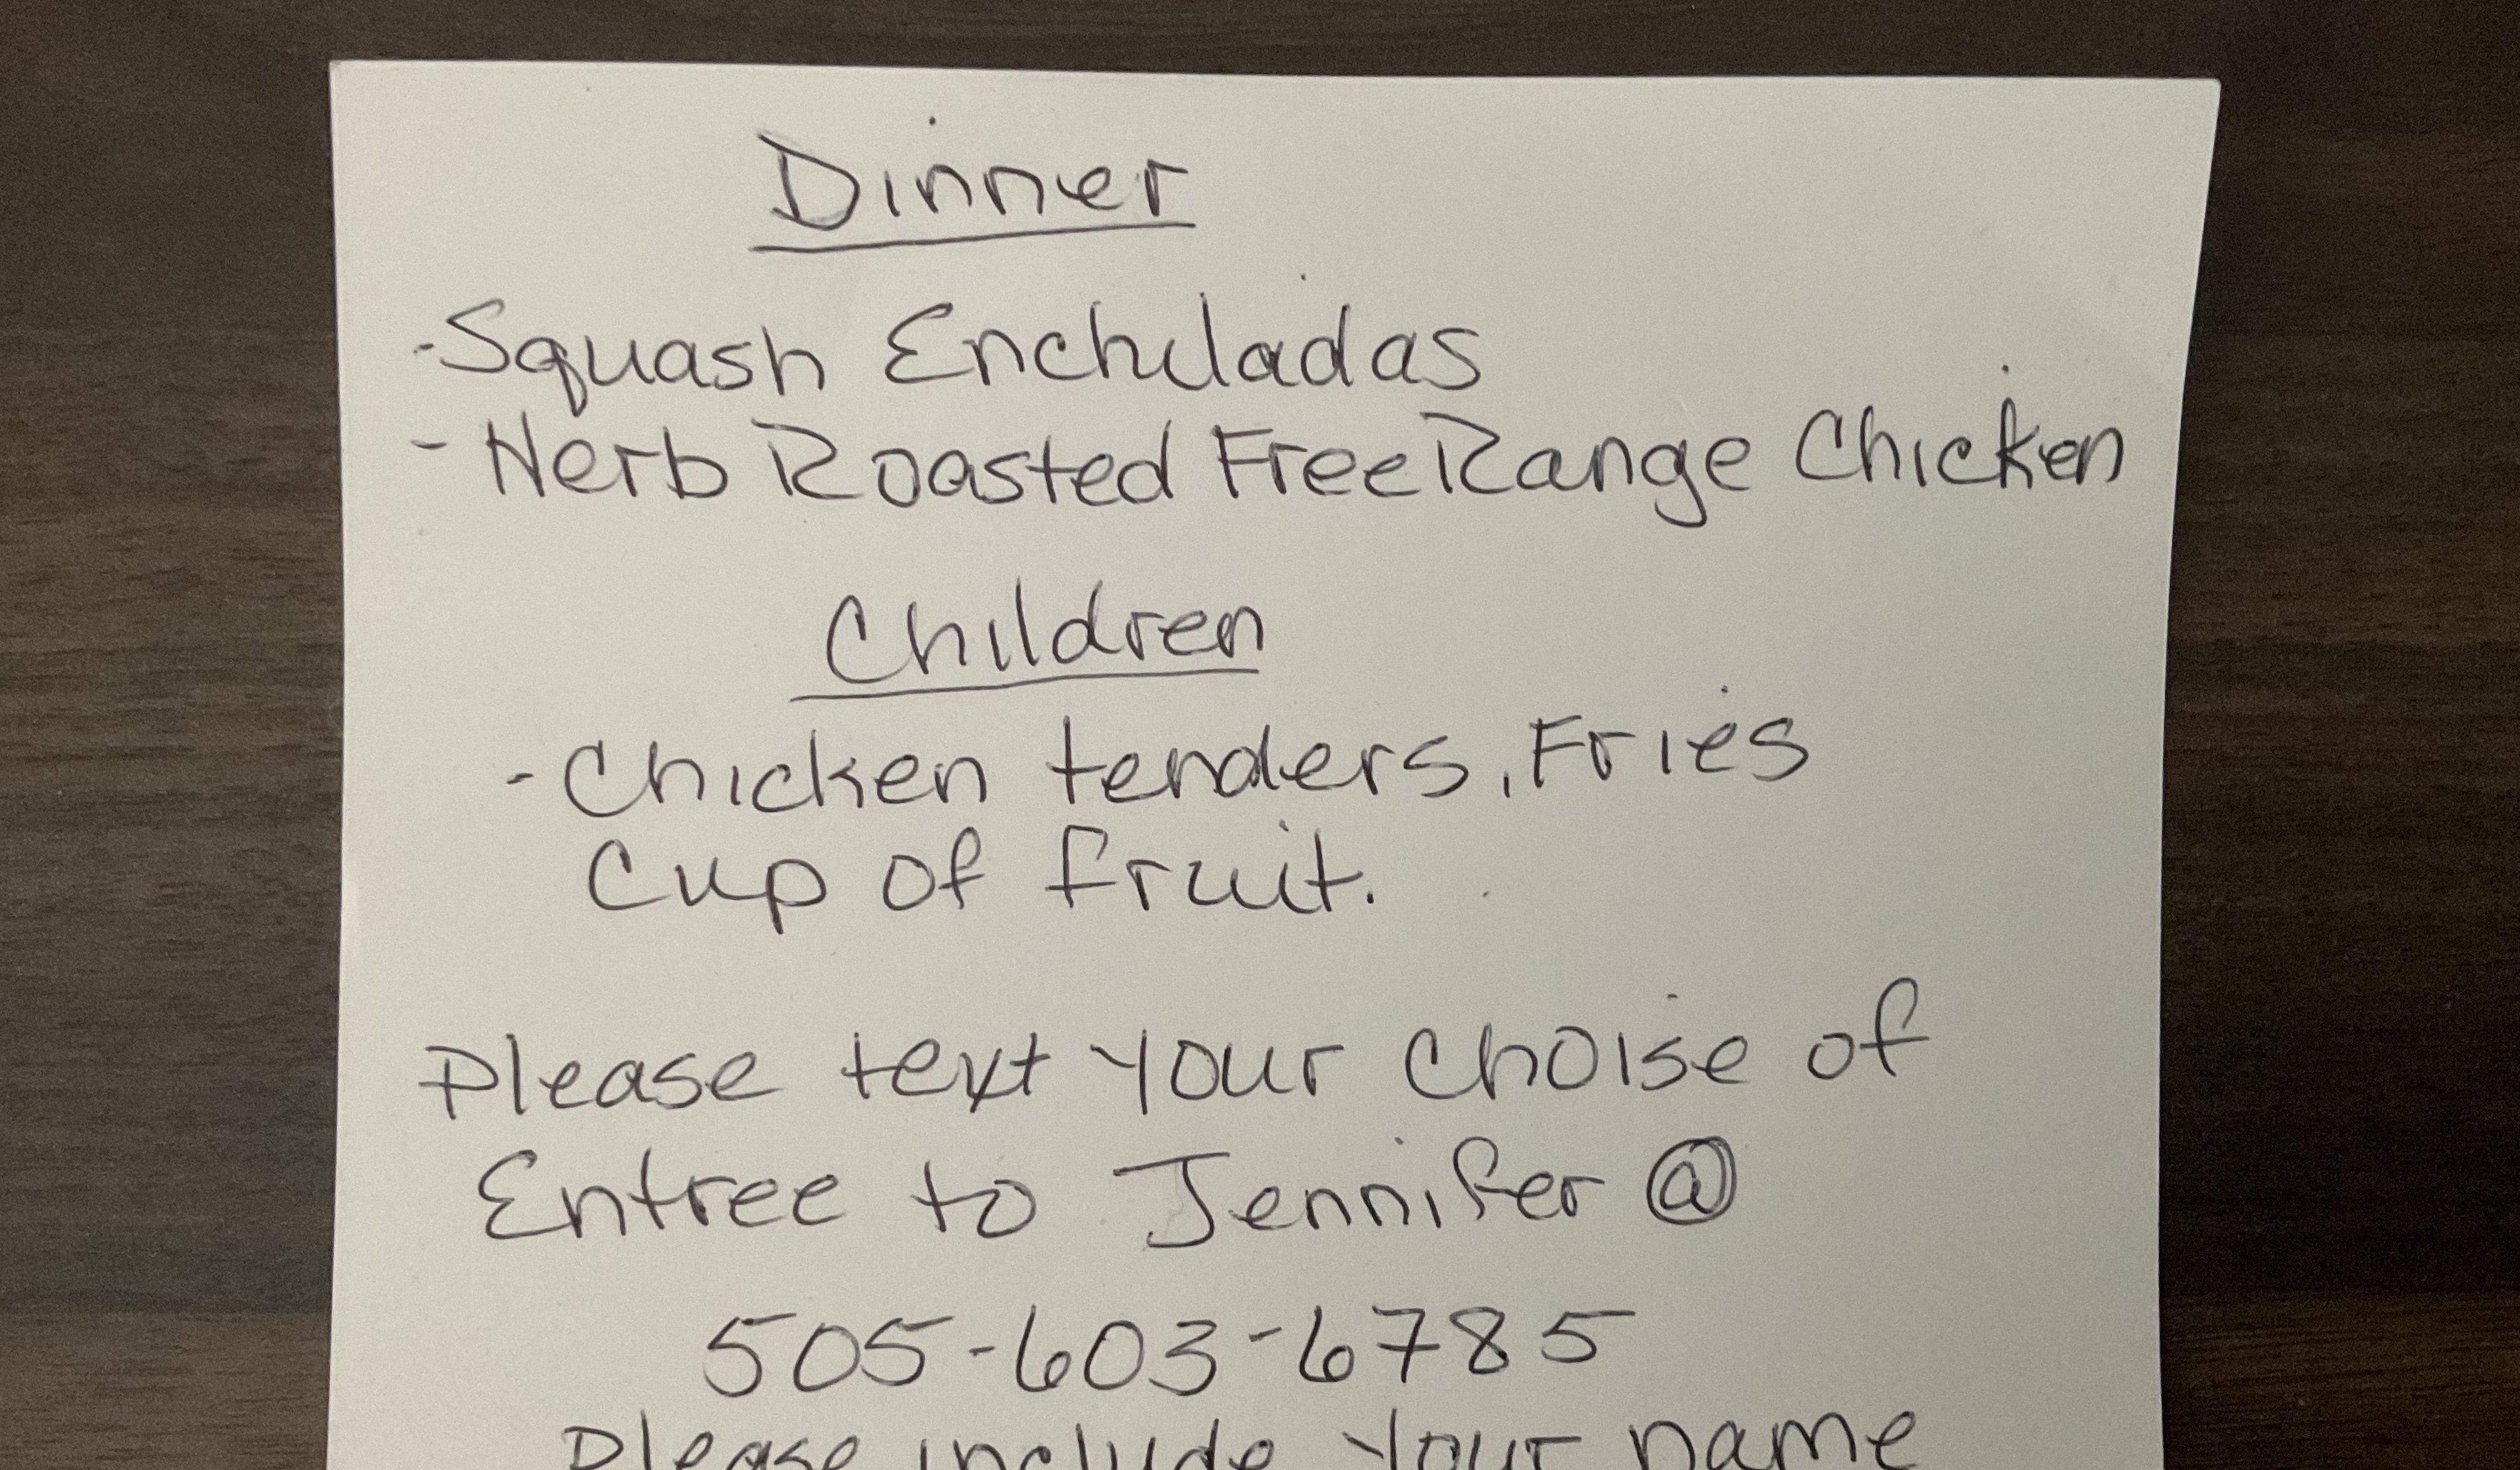 Dinner
- Squash Enchiladas
- Herb Roasted Free Range Chicken
Children
- Chicken tenders, Fries
Cup of fruit.
Please text your choise of
Entree to Jennifer @
505-603-6785
Please include your name